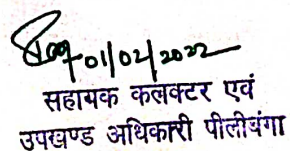 01/02/2022
सहायक कलक्टर एवं
उपखण्ड अधिकारी पीलीबंगा